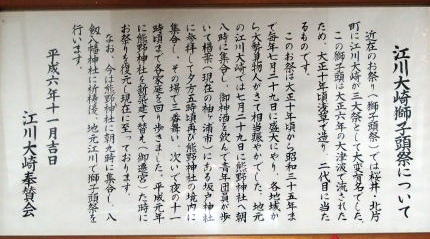 江川大崎獅子頭祭について
近在のお祭り(獅子頭祭)では桜井、北片
町に江川大崎が三大祭として大変有名でした。
この獅子頭は大正六年の大津波で流された
ため、大正十年頃浄算で造り、二代目に当た
るものです。
このお祭は大正十年頃から昭和三十五年ま
で毎年七月二十九日に盛大にやり、各地域か
ら大勢見物人がきて相当賑やかでした。地元
の江川大崎では七月二十九日に熊野神社へ朝
八時に集合し、御神酒を飲んで青年団員が歩
いて楊柴(現在の袖ヶ浦市)にある坂戸神社
に参拝して夕方五時頃再び熊野神社の境内に
集合し、その場で三番舞い、次いで夜の十一
時頃まで各家庭を回り歩きました。平成元年
に熊野神社を新築建て替え(御遷宮)た時に
お祭りを復元し現在に至っております。
なお、今はお祭りに朝七時に集合し、八
剱八幡神社に祈祷後、地元江川で獅子頭祭を
行います。
平成六年十一月吉日
江川大崎奉賛会